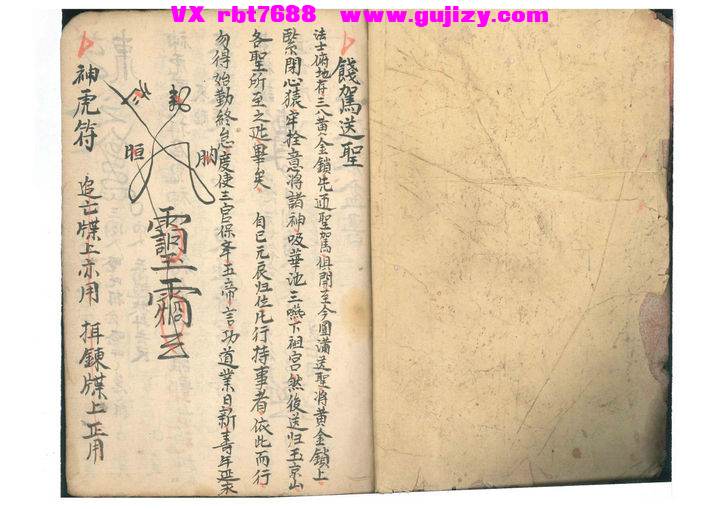 VX rbt7688 www.gujizy.com
餞駕送聖
法士俯地存三八黃金鎖先通聖駕俱開至今圓滿送聖將黃金鎖上
緊閉心猿牢拴意將諸神吸華池三嚥下祖宮然後送归玉京山
各聖所至之此畢矣 自己元辰归位凡行持事者依此而行
勿得始勤終怠度使三官保奉五帝言功道業日新壽年延末
胸
恒
神虎符 追亡牒上亦用 揖鍊牒上正用